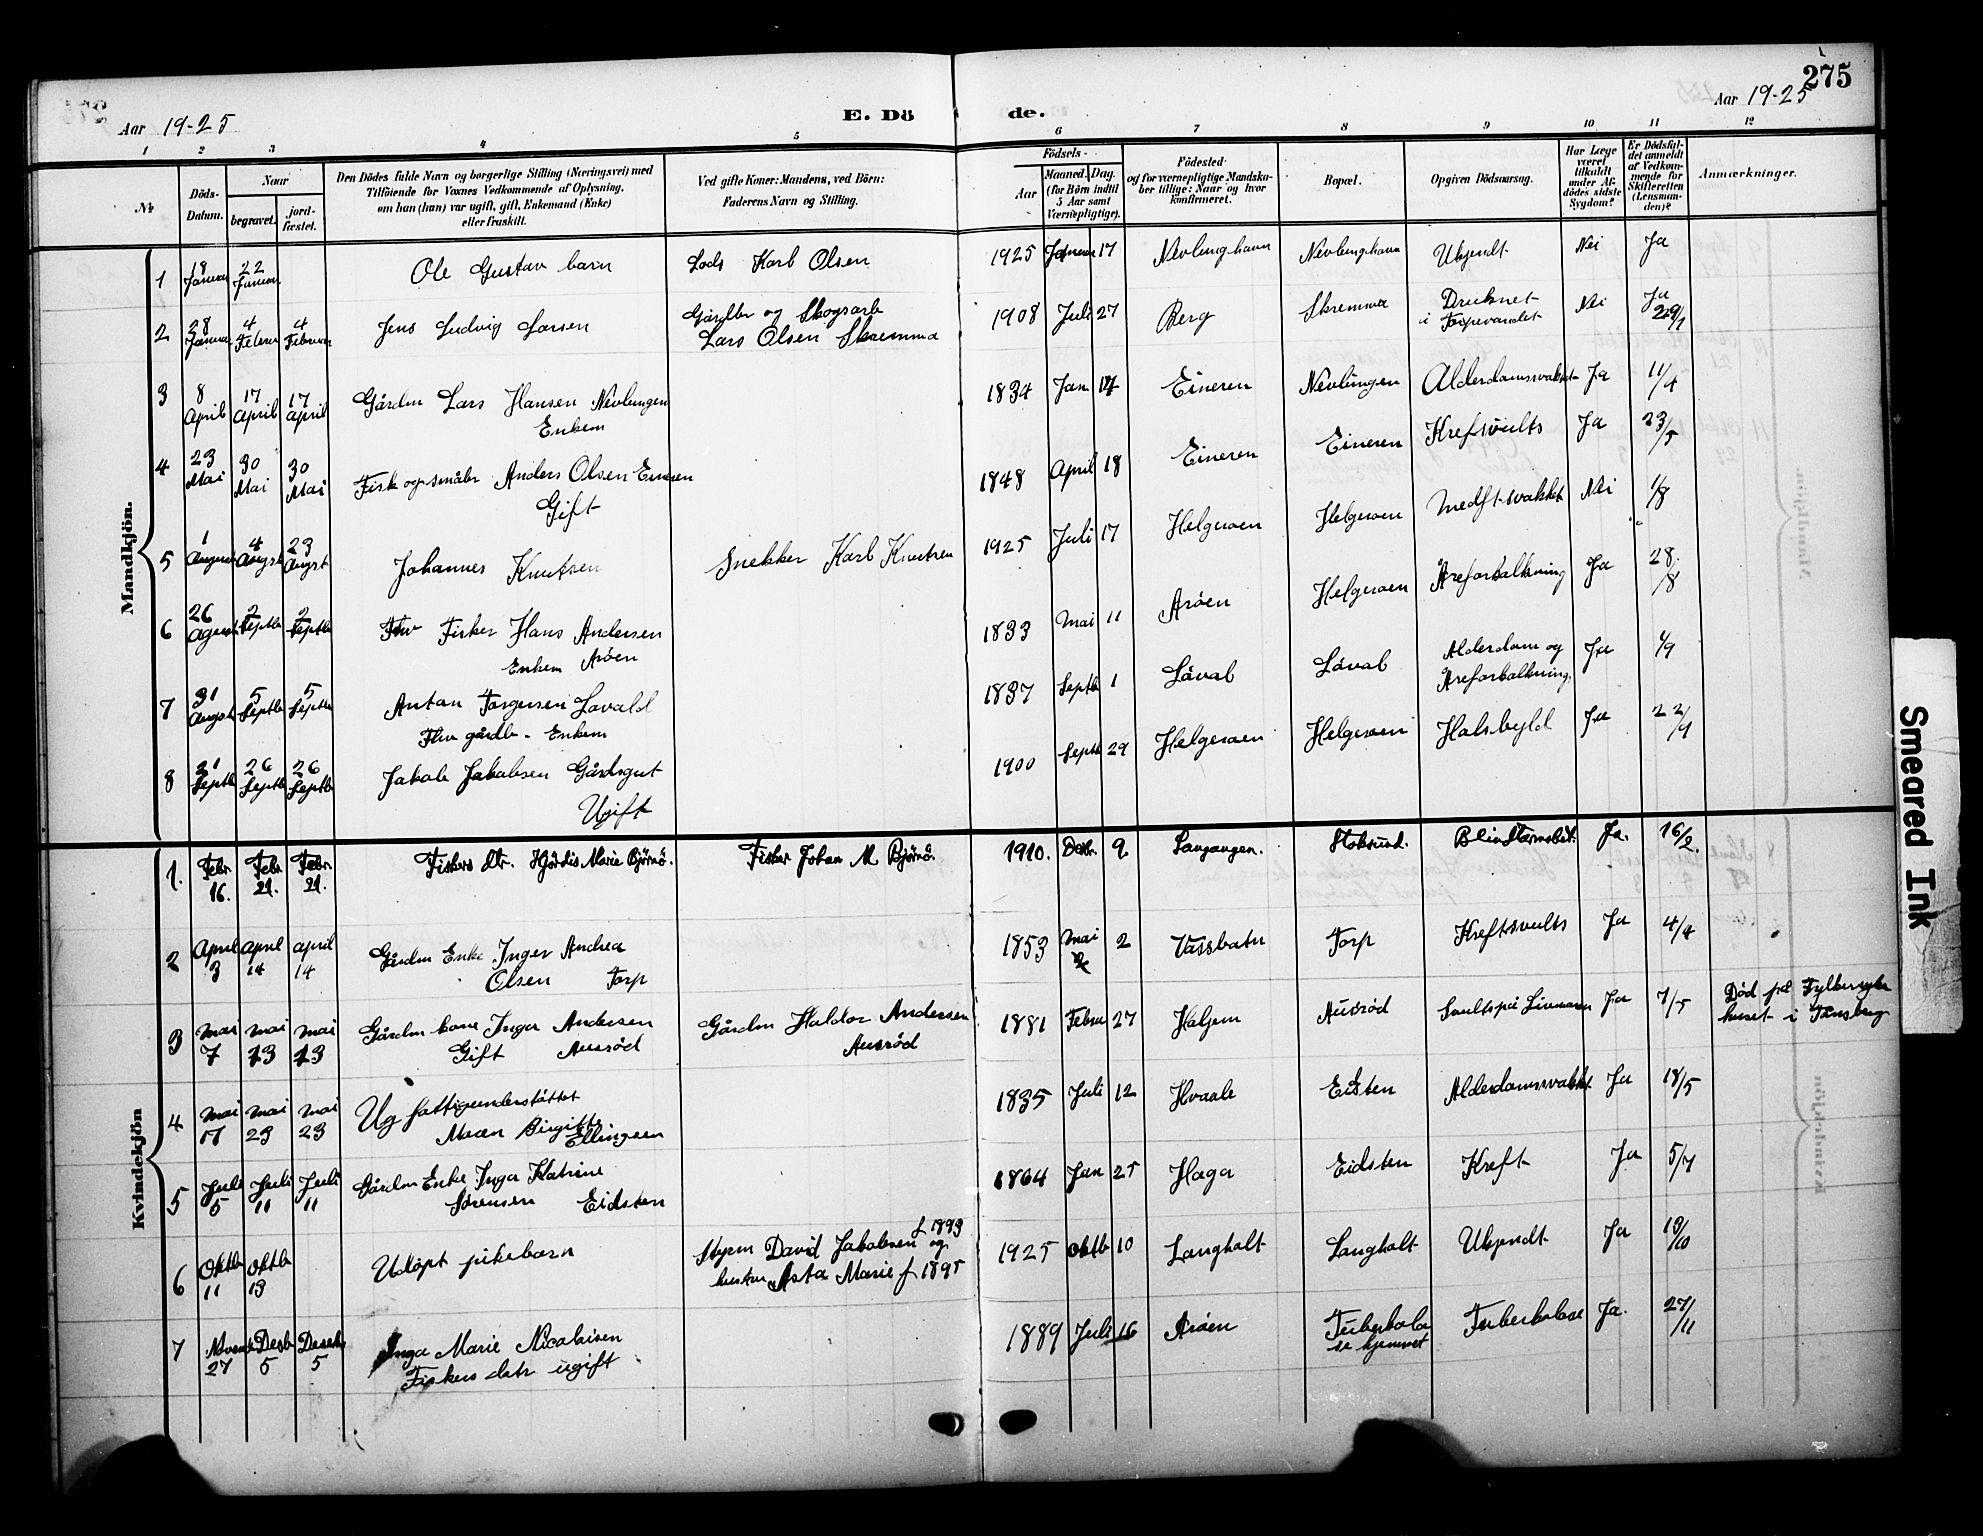 275
Aar 19-25
E. Dö
de.
Aar 19-25
1 2 3 4 5 6 7 8 9 10 11 12
№
Döds-
Datum.
Naar
begravet.
jord-
fæstet.
Den Dödes fulde Navn og borgerlige Stilling (Næringsvei) med
Tilföiende for Voxnes Vedkommende af Oplysning,
om han (hun) var ugift, gift, Enkemand (Enke)
eller fraskilt.
Ved gifte Koner: Mandens, ved Börn:
Faderens Navn og Stilling.
Födsels-
Aar
Maaned. Dag.
(for Börn indtil
5 Aar samt
Værnepligtige).
Födested
og for værnepligtige Mandska-
ber tillige: Naar og hvor
konfirmeret.
Bopæl.
Opgiven Dödsaarsag.
Har Læge
været
tilkaldt
under Af-
dödes sidste
Sygdom?
Er Dödsfal-
det anmeldt
af Vedkom-
mende for
Skifteretten
(Lensman-
den)?
Anmærkninger.
Mandkjön.
1 18 Januar 22 Januar Ole Gustav barn Lods Karl Olsen 1925 Januar 17 Nevlunghavn Nevlunghavn Ukjendt Nei Ja
2 28 Januar 4 Februar 4 Februar Jens Ludvig Larsen Gårdbr og Skogsarb
Lars Olsen Skremma 1908 Juli 27 Berg Skremma Druknet
i Torpevandet Nei Ja 29/1
3 8 April 17 April 17 April Gårdm Lars Hansen Nevlungen
Enkem 1834 Jan 14 Eineren Nevlungen Alderdomssvakhet Ja 11/4
4 23 Mai 30 Mai 30 Mai Fisk og småbr Anders Olsen Eineren
Gift 1848 April 18 Eineren Eineren Krefsvults Ja 23/5
5 1 August 4 Augst 23 Augst Johannes Knutsen Snekker Karl Knutsen 1925 Juli 17 Helgeroen Helgeroen Medft svakhet Nei 1/8
6 26 Agust 2 Septbr 2 Septbr Fhv Fisker Hans Andersen
Enkem Aröen 1833 Mai 11 Aröen Helgeroen Åreforkalkning Ja 28/8
7 31 Augst 5 Septbr 5 Septbr Anton Torgersen Lovald
Fhv gårdb - Enkem 1837 Septb 1 Låval Låval Alderdom og
Åreforkalkning Ja 1/9
8 21 Septb 26 Septb 26 Septb Jakob Jakobsen Gårdsgut
Ugift 1900 Septb 29 Helgeroen Helgeroen Halsbyld Ja 22/9
Kvindekjön
1. Febr. 16. Febr. 21. Febr. 21. Fiskers dtr. Hjördis Marie Björnö. Fisker Johan M Björnö. 1910. Desbr. 9. Langangen. Stoksund. Blindtarmsbet. Ja. 16/2.
2 April 3 April 14 April 14 Gårdm Enke Inger Andrea
Olsen Torp 1853 Mai 2 Vassbotn Torp Kreftsvults Ja 4/4
3 Mai 7 Mai 13 Mai 13 Gårdm kone Inga Andersen
Gift Ausröd Gårdm Haldor Andersen
Ausröd 1881 Februar 27 Haljem Ausröd Svults på Livmoren Ja 7/5 Död på Fylkessyke
huset i Tönsberg
4 Mai 17 Mai 23 Mai 23 Ug fattigunderstöttet
Maren Birgitte
Ellingsen 1835 Juli 12 Hvaale Eidsten Alderdomssvakhet Ja 18/5
5 Juli 5 Juli 11 Juli 11 Gårdm Enke Inga Katrine
Sörensen Eidsten 1864 Jan 25 Haga Eidsten Kreft Ja 5/7
6 Oktbr 11 Oktbr 13 Udöpt pikebarn Styrm David Jakobsen f 1893
og
hustru Asta Marie f 1895 1925 Oktb 10 Langholt Langholt Ukjendt Ja 13/10
7 Novemb 27 Desb 5 Desemb 5 Inga Marie Nicolaisen
Fiskers datr ugift 1889 Juli 16 Aröen Tuberkolo
se hjemmet Tuberkolose Ja. 27/11
Smeared Ink